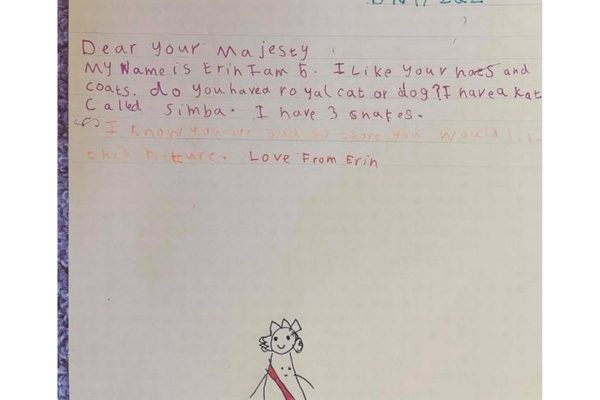 Dear Your Majesty
My Name is Erin I am 6. I Like your hats and
coats. do You have a royal cat or dog? I have a kat
Called Simba. I have 3 snakes.
I know you are sad so there you would li
this picture. Love From Erin